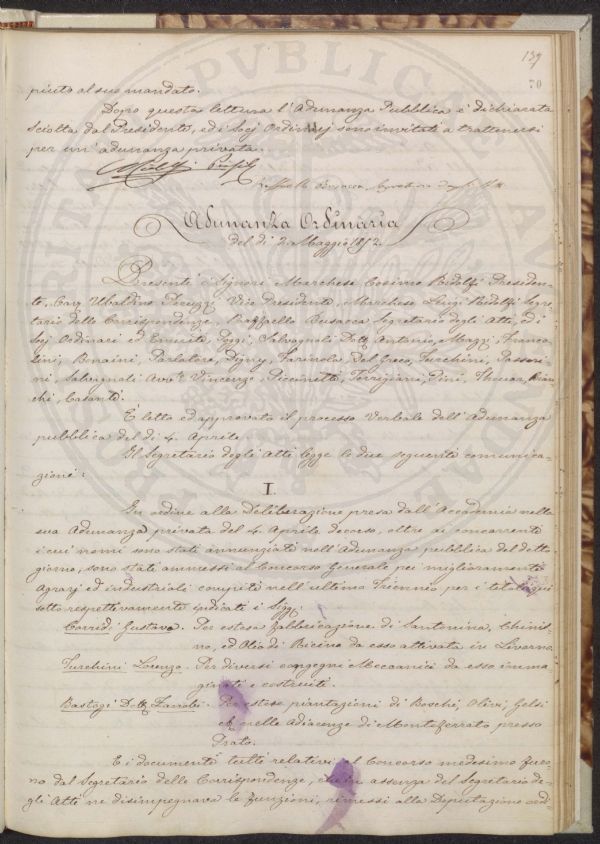 139
70
piuto al suo mandato.
Dopo questa lettura l'Adunanza Pubblica è dichiarata
sciolta dal Presidente, ed i Socj Ordinarj sono invitati a trattenersi
per un'adunanza privata.
Ridolfi
Raffaello Busacca Segretario degli Atti
Adunanza Ordinaria
del dì 2 Maggio 1852.
Presenti i Signori Marchese Cosimo Ridolfi Presiden-
te, Cav. Ubaldino Peruzzi Vice Presidente, Marchese Luigi Ridolfi Segre-
tario delle Corrispondenze, Raffaello Busacca Segretario degli Atti, ed i
Socj Ordinari ed Emeriti, Poggi, Salvagnoli Dott. Antonio, Mazzi, Franco-
lini, Bonaini, Parlatore, Digny, Farinola, Del Greco, Turchini, Passeri-
ni, Salvagnoli Avv. Vincenzo, Torrigiani, Pini, Thouar, Bian-
chi, Casanti.
È letto ed approvato il processo Verbale dell'Adunanza
pubblica del dì 4. Aprile
Il Segretario degli Atti legge le due seguenti comunica-
zioni:
I.
In ordine alla Deliberazione presa dall'Accademia nella
sua Adunanza privata del 4 Aprile decorso, oltre ai concorrenti
i cui nomi sono stati annunziati nell'Adunanza pubblica del detto
giorno, sono stati ammessi al Concorso Generale pei miglioramenti
Agrarj ed industriali compiti nell'ultimo Triennio per i titoli qui
sotto respettivamente indicati i Sigg.
Corridi Gustavo. Per estesa fabbricazione di Santonina, Chini-
no, ed Olio di Ricino da esso attivata in Livorno.
Turchini Lorenzo. Per diversi congegni Meccanici da esso imma
ginati e costruiti.
Bastogi Dott. Zanobi. Per estese piantazioni di Boschi, Olivi, Gelsi
nelle Adiacenze di Monteferrato presso
Prato.
E i documenti tutti relativi al Concorso medesimo furo-
no dal Segretario delle Corrispondenze, che in assenza del Segretario de-
gli Atti ne disimpegnava le funzioni, rimessi alla Deputazione